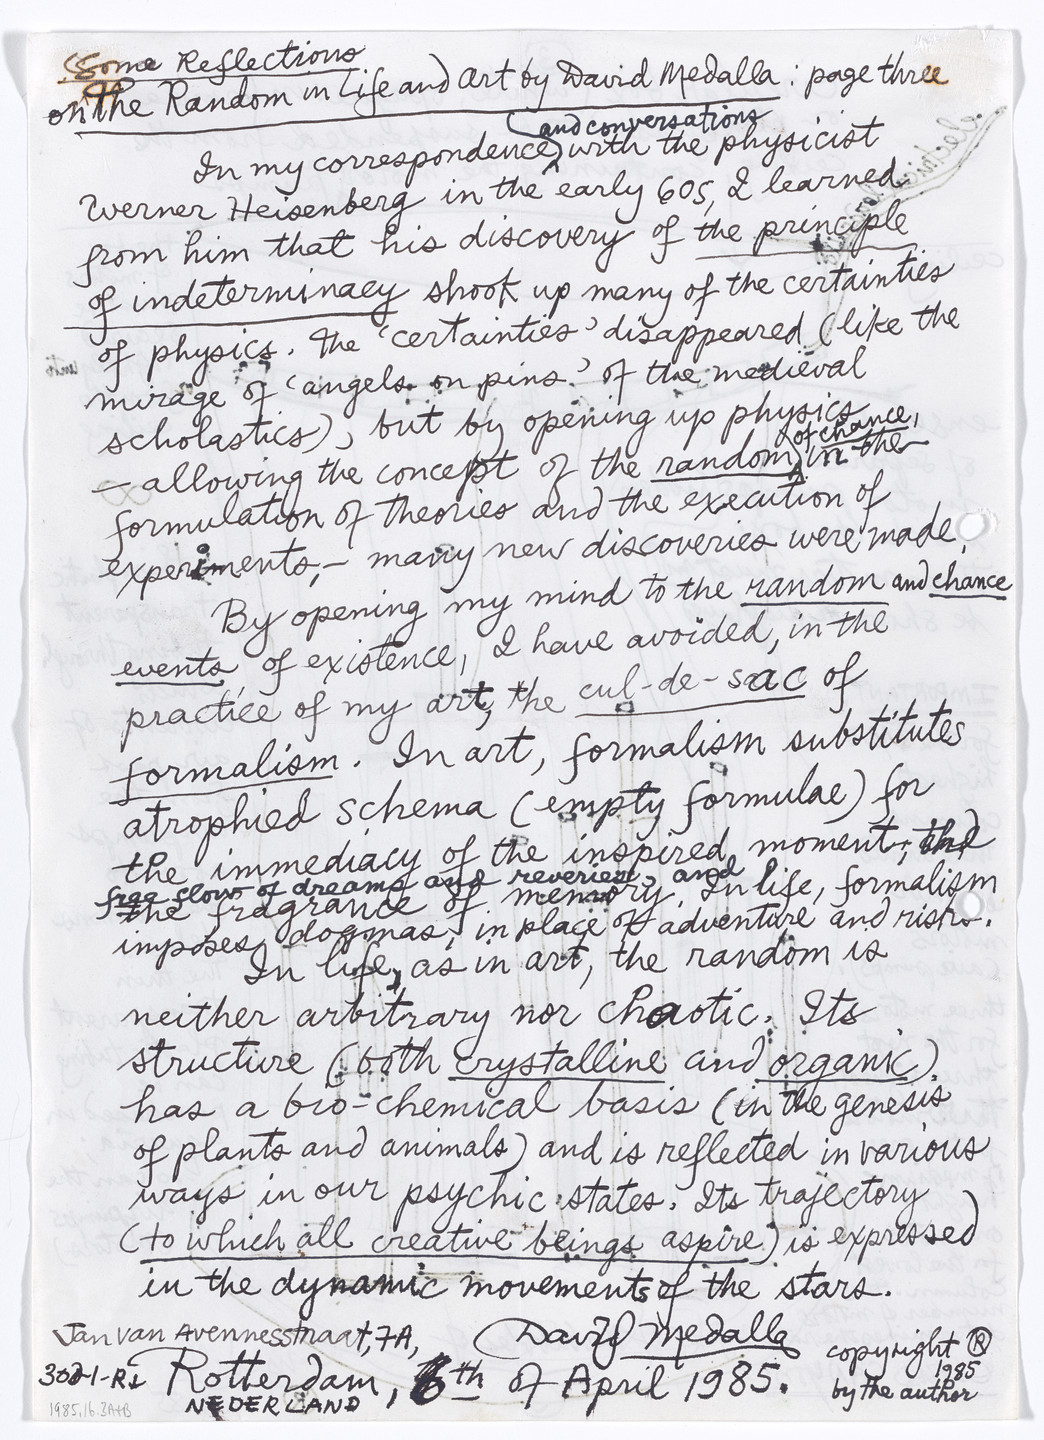 Some Reflections
on the Random in Life and Art by David Medalla: page three
and conversations
In my correspondence, with the physicist
Werner Heisenberg in the early 60s, I learned
from him that his discovery of the principle
of indeterminacy shook up many of the certainties
of physics. The 'certainties' disappeared (like the
mirage of 'angels on pins' of the medieval
scholastics), but by opening up physics
of chance,
— allowing the concept of the random, in the
formulation of theories and the execution of
experiments, — many new discoveries were made.
By opening my mind to the random and chance
events of existence, I have avoided, in the
practice of my art, the cul-de-sac of
formalism. In art, formalism substitutes
atrophied schema (empty formulae) for
the immediacy of the inspired moment, the
free flow of dreams and reveries, and
the fragrance of memory. In life, formalism
imposes dogmas, in place of adventure and risks.
In life, as in art, the random is
neither arbitrary nor chaotic. Its
structure (both crystalline and organic)
has a bio-chemical basis (in the genesis
of plants and animals) and is reflected in various
ways in our psychic states. Its trajectory
(to which all creative beings aspire) is expressed
in the dynamic movements of the stars.
Jan van Avennesstraat, 7A,
David Medalla
Rotterdam, 6th of April 1985.
NEDERLAND
copyright ®
1985
by the author